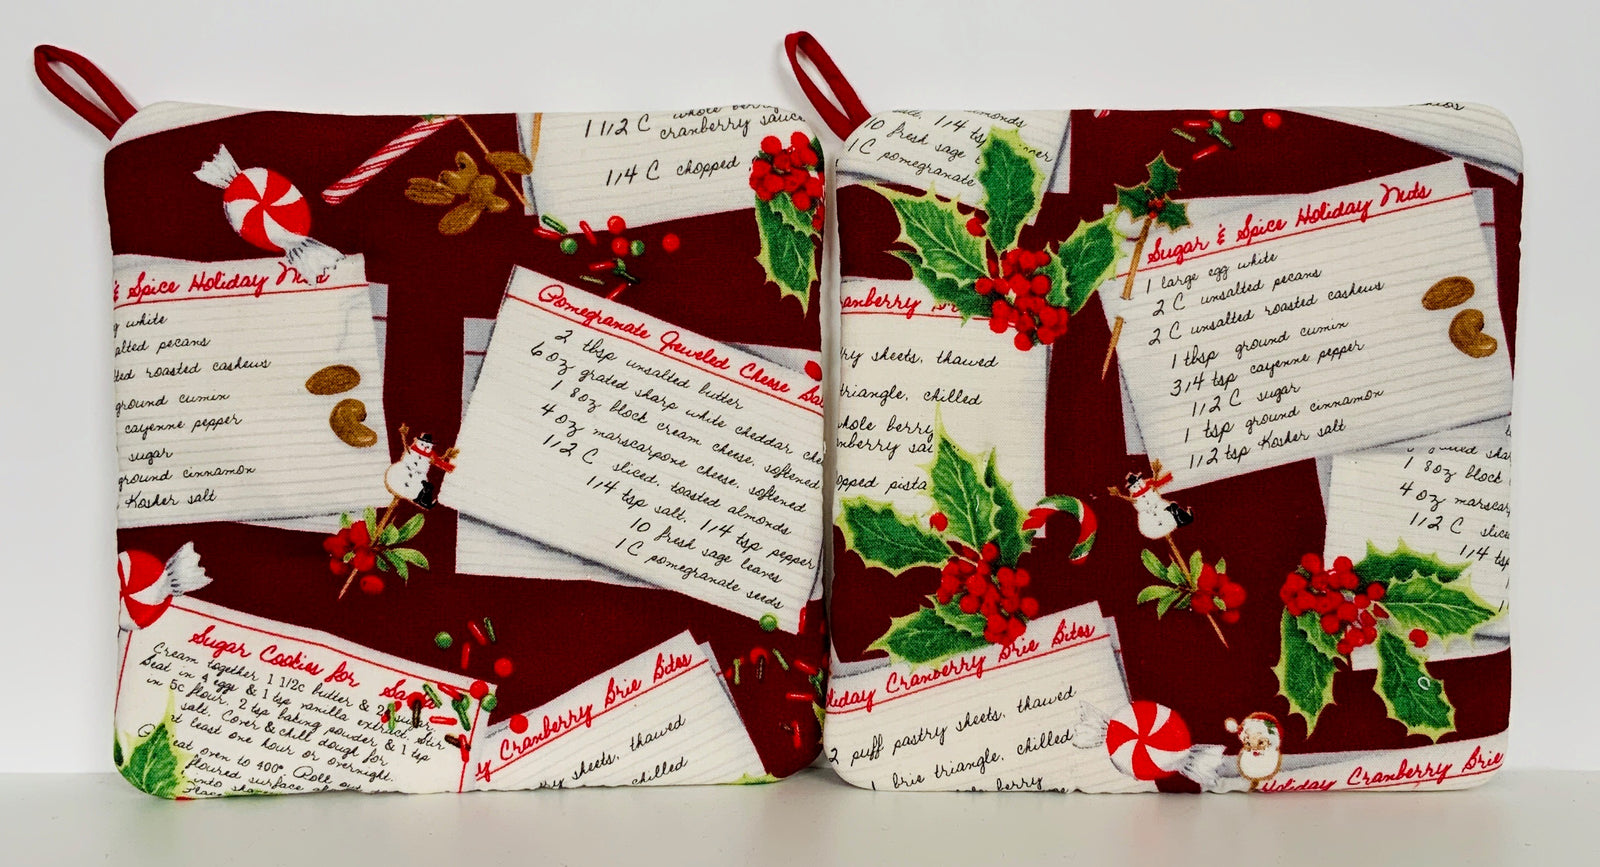 1 1/2 C whole berry
cranberry sauce
1/4 C chopped
& Spice Holiday Nuts
white
pecans
roasted cashews
ground cumin
cayenne pepper
sugar
ground cinnamon
Kosher salt
Pomegranate Jeweled Cheese
2 tbsp unsalted butter
6 oz grated sharp white cheddar
1 8oz block cream cheese, softened
4 oz marscarpone cheese, softened
1/2 C sliced, toasted almonds
1/4 tsp salt, 1/4 tsp pepper
10 fresh sage leaves
1 C pomegranate seeds
Sugar Cookies for Santa
Cream together 1 1/2c butter & 2c sugar.
Beat in 4 eggs & 1 tsp vanilla extract. Stir
in 5c flour, 2 tsp baking powder & 1 tsp
salt. Cover & chill dough for
at least one hour or overnight.
oven to 400° Roll out
floured surface
into
Place
Cranberry Brie Bites
sheets, thawed
chilled
1/4
10 fresh sage
1 C pomegranate
Cranberry
sheets, thawed
triangle, chilled
whole berry
Sugar & Spice Holiday Nuts
1 large egg white
2 C unsalted pecans
2 C unsalted roasted cashews
1 tbsp ground cumin
3/4 tsp cayenne pepper
1/2 C sugar
1 tsp ground cinnamon
1/2 tsp Kosher salt
1 8oz block
4 oz
1/2 C
1/4 tsp
Cranberry Brie Bites
2 puff pastry sheets, thawed
1 brie triangle, chilled
berry
Holiday Cranberry Brie